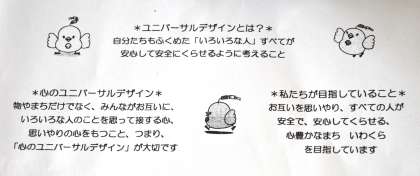 ＊ユニバーサルデザインとは？＊
自分たちもふくめた「いろいろな人」すべてが
安心して安全にくらせるように考えること
＊心のユニバーサルデザイン＊
物やまちだけでなく、みんながお互いに、
いろいろな人のことを思って接する心、
思いやりの心をもつこと、つまり、
「心のユニバーサルデザイン」が大切です
＊私たちが目指していること＊
お互いを思いやり、すべての人が
安全で、安心してくらせる、
心豊かなまち　いわくら
を目指しています